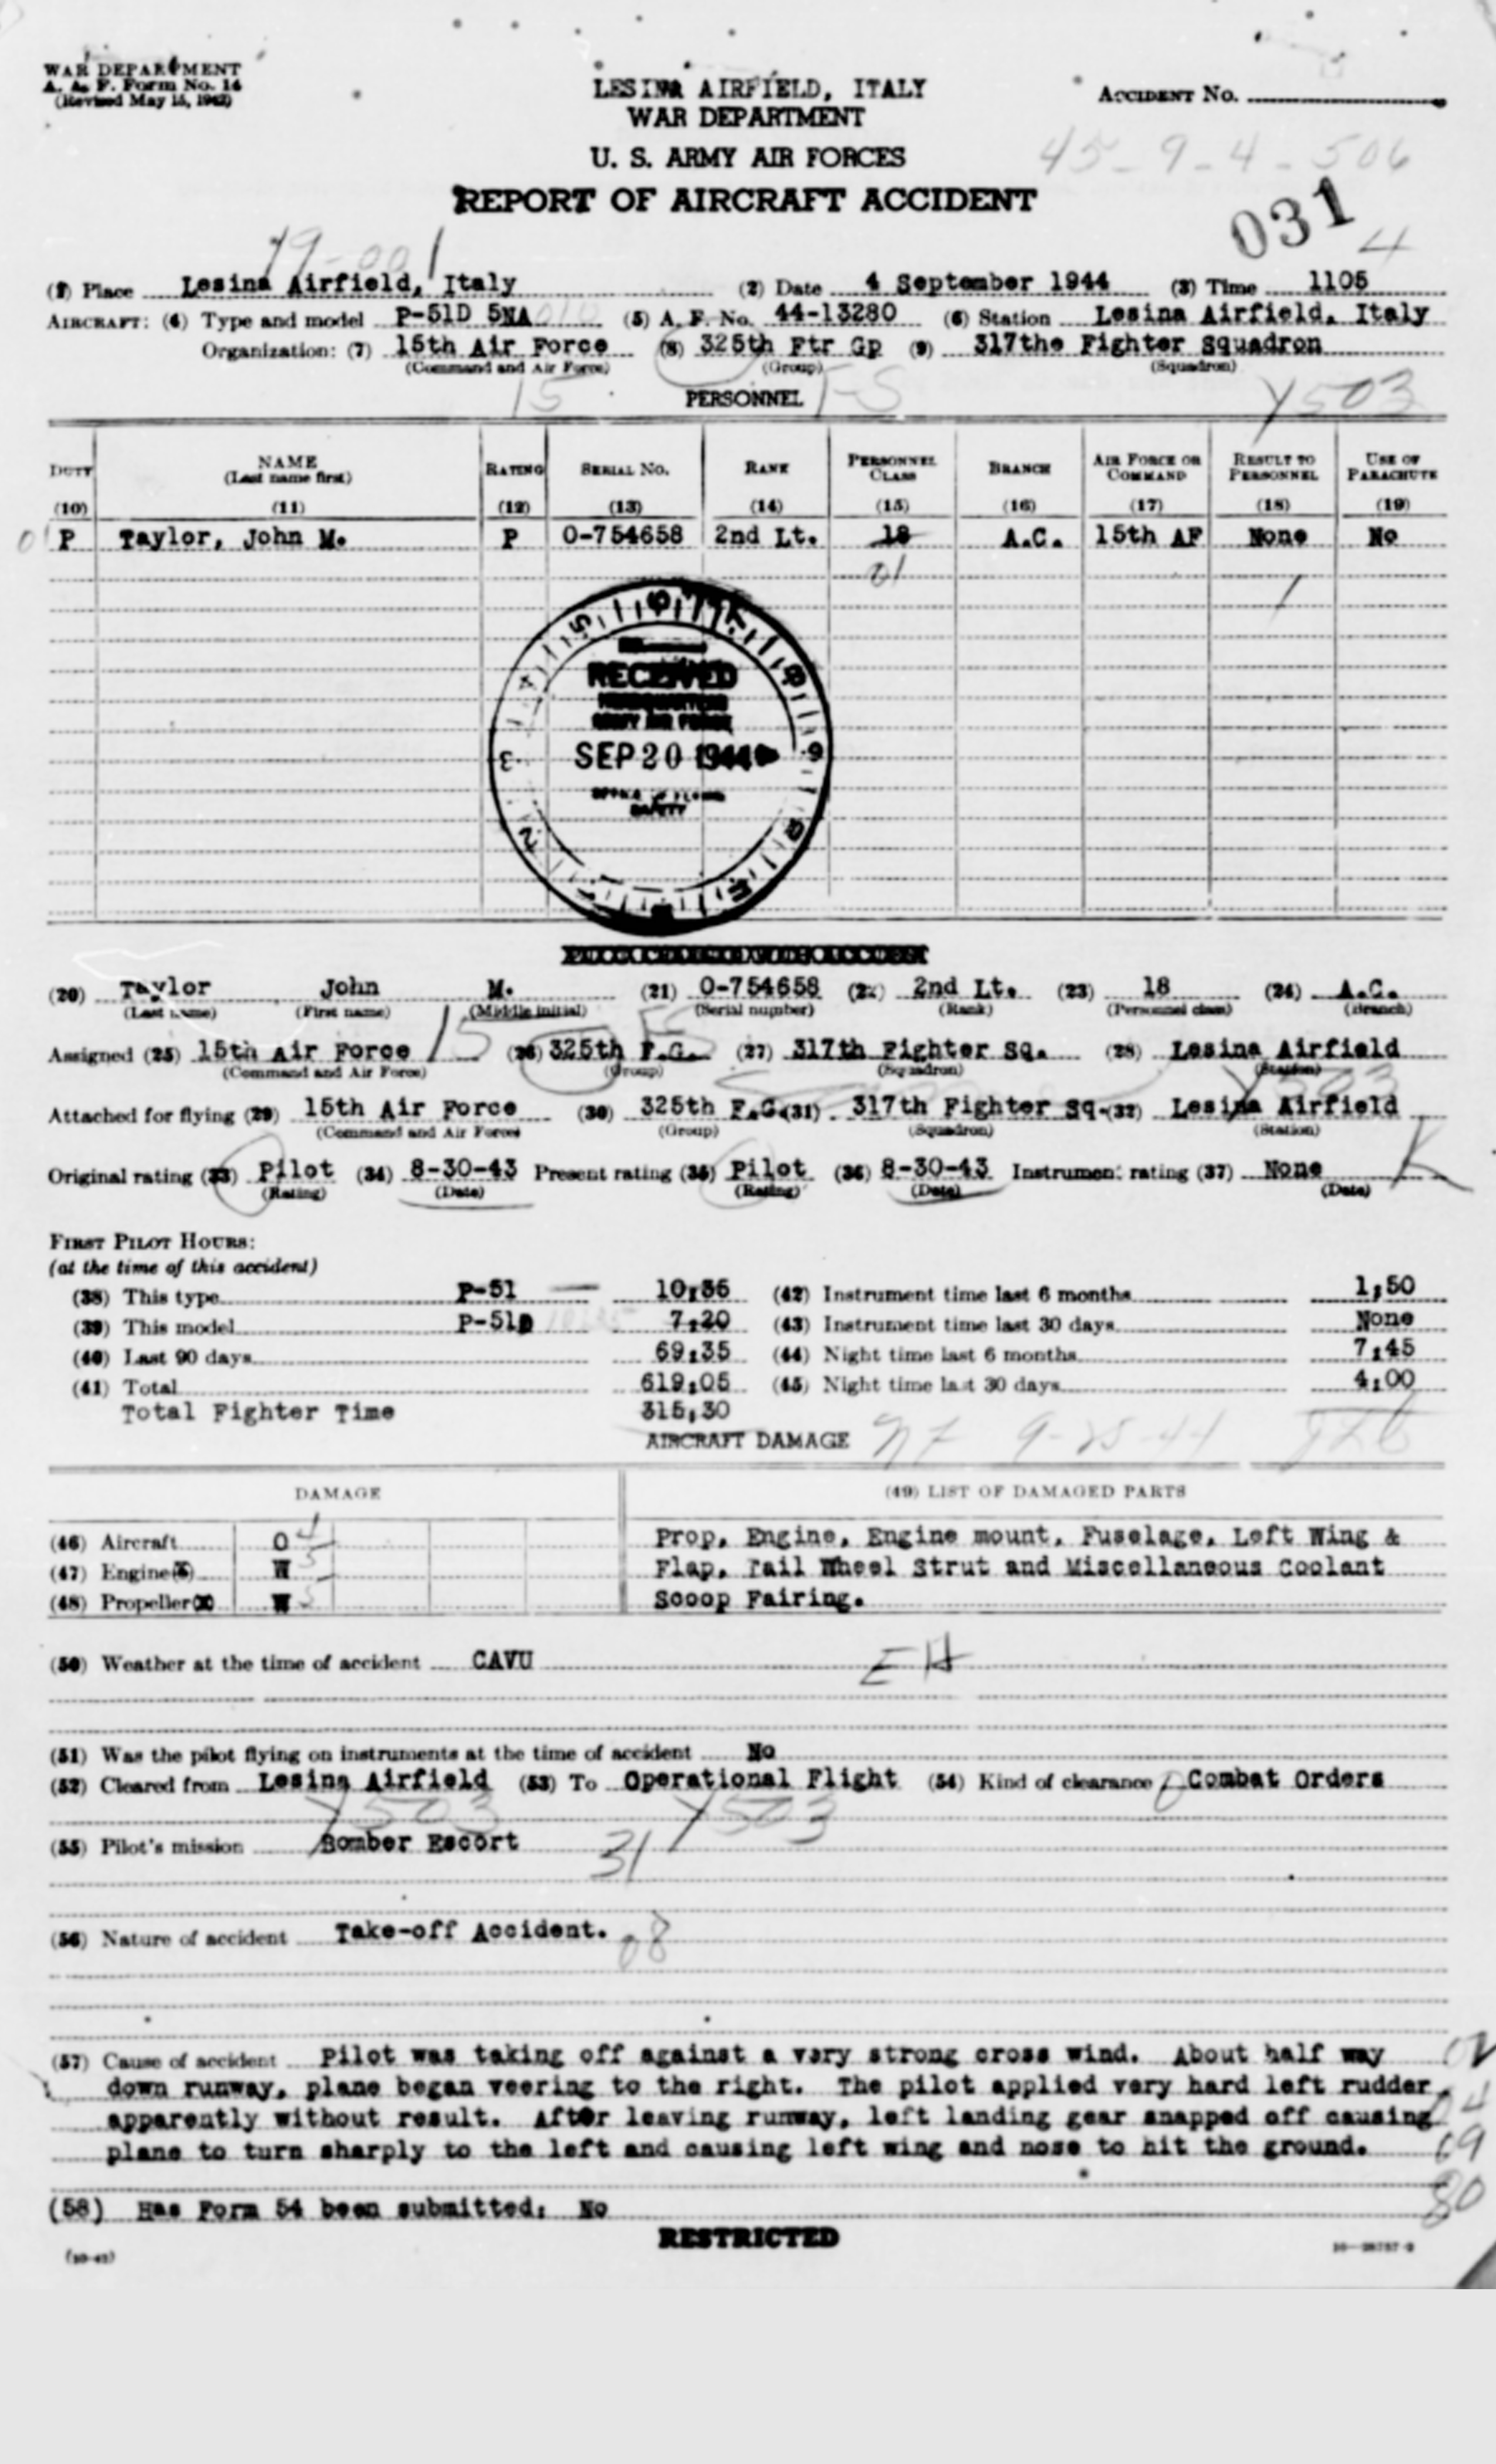 WAR DEPARTMENT
A. A. F. Form No. 14
(Revised May 15, 1942)
LESINA AIRFIELD, ITALY
WAR DEPARTMENT
U. S. ARMY AIR FORCES
REPORT OF AIRCRAFT ACCIDENT
ACCIDENT No.
45-9-4-506
031
4
79-001
(1) Place Lesina Airfield, Italy (2) Date 4 September 1944 (3) Time 1105
AIRCRAFT: (4) Type and model P-51D 5NA (5) A. F. No. 44-13280 (6) Station Lesina Airfield, Italy
Organization: (7) 15th Air Force (8) 325th Ftr Gp (9) 317the Fighter Squadron
(Command and Air Force) (Group) (Squadron)
15 PERSONNEL F-S Y503
DUTY NAME (Last name first) RATING SERIAL NO. RANK PERSONNEL CLASS BRANCH AIR FORCE OR COMMAND RESULT TO PERSONNEL USE OF PARACHUTE
(10) (11) (12) (13) (14) (15) (16) (17) (18) (19)
P Taylor, John M. P O-754658 2nd Lt. 18 A.C. 15th AF None No
01
RECEIVED
ARMY AIR FORCE
SEP 20 1944
SAFETY
(20) Taylor John M. (21) O-754658 (22) 2nd Lt. (23) 18 (24) A.C.
(Last name) (First name) (Middle initial) (Serial number) (Rank) (Personnel class) (Branch)
Assigned (25) 15th Air Force 15 (26) 325th F.G. (27) 317th Fighter Sq. (28) Lesina Airfield
(Command and Air Force) (Group) (Squadron) (Station)
Attached for flying (29) 15th Air Force (30) 325th F.G. (31) 317th Fighter Sq. (32) Lesina Airfield
(Command and Air Force) (Group) (Squadron) (Station)
Original rating (33) Pilot (34) 8-30-43 Present rating (35) Pilot (36) 8-30-43 Instrument rating (37) None
(Rating) (Date) (Rating) (Date) (Date)
FIRST PILOT HOURS:
(at the time of this accident)
(38) This type P-51 10:35 (42) Instrument time last 6 months 1:50
(39) This model P-51D 7:20 (43) Instrument time last 30 days None
(40) Last 90 days 69:35 (44) Night time last 6 months 7:45
(41) Total 619:05 (45) Night time last 30 days 4:00
Total Fighter Time 315:30
AIRCRAFT DAMAGE 9-25-44
DAMAGE (49) LIST OF DAMAGED PARTS
(46) Aircraft O 4 Prop, Engine, Engine mount, Fuselage, Left Wing &
(47) Engine(s) W 5 Flap, Tail Wheel Strut and Miscellaneous Coolant
(48) Propeller W 5 Scoop Fairing.
(50) Weather at the time of accident CAVU
(51) Was the pilot flying on instruments at the time of accident No
(52) Cleared from Lesina Airfield (53) To Operational Flight (54) Kind of clearance Combat Orders
Y503 Y503
(55) Pilot's mission Bomber Escort 31
(56) Nature of accident Take-off Accident. 08
(57) Cause of accident Pilot was taking off against a very strong cross wind. About half way
down runway, plane began veering to the right. The pilot applied very hard left rudder,
apparently without result. After leaving runway, left landing gear snapped off causing
plane to turn sharply to the left and causing left wing and nose to hit the ground.
(58) Has Form 54 been submitted: No
RESTRICTED